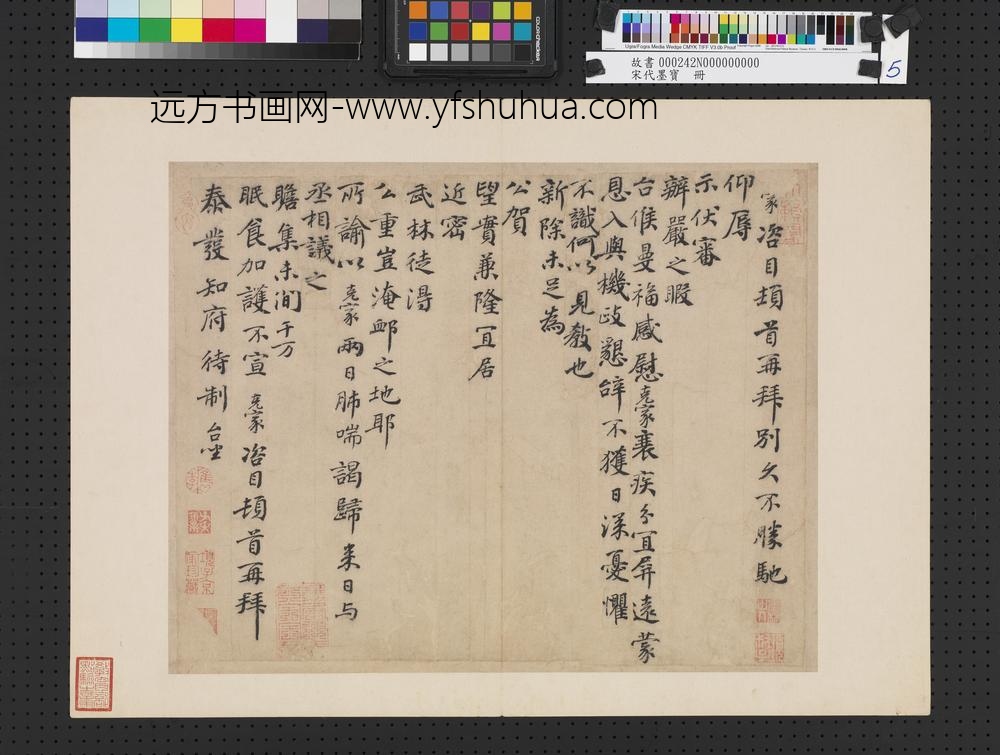 远方书画网-www.yfshuhua.com
Ugra/Fogra Media Wedge CMYK TIFF V3.0b Proof
故書 000242N000000000
宋代墨寶 冊
5
克家咨目頓首再拜別久不勝馳
仰辱
示伏審
辦嚴之暇
台候曼福感慰克家衰疾分宜屏遠蒙
恩入與機政懇辞不獲日深憂懼
不識何以見教也
新除未足為
公賀
望實兼隆宜居
近密
武林徒得
公重豈淹郵之地耶
所諭以克家兩日肺喘謁歸来日与
丞相議之
瞻集未间千万
眠食加護不宣克家咨目頓首再拜
泰發知府待制台坐